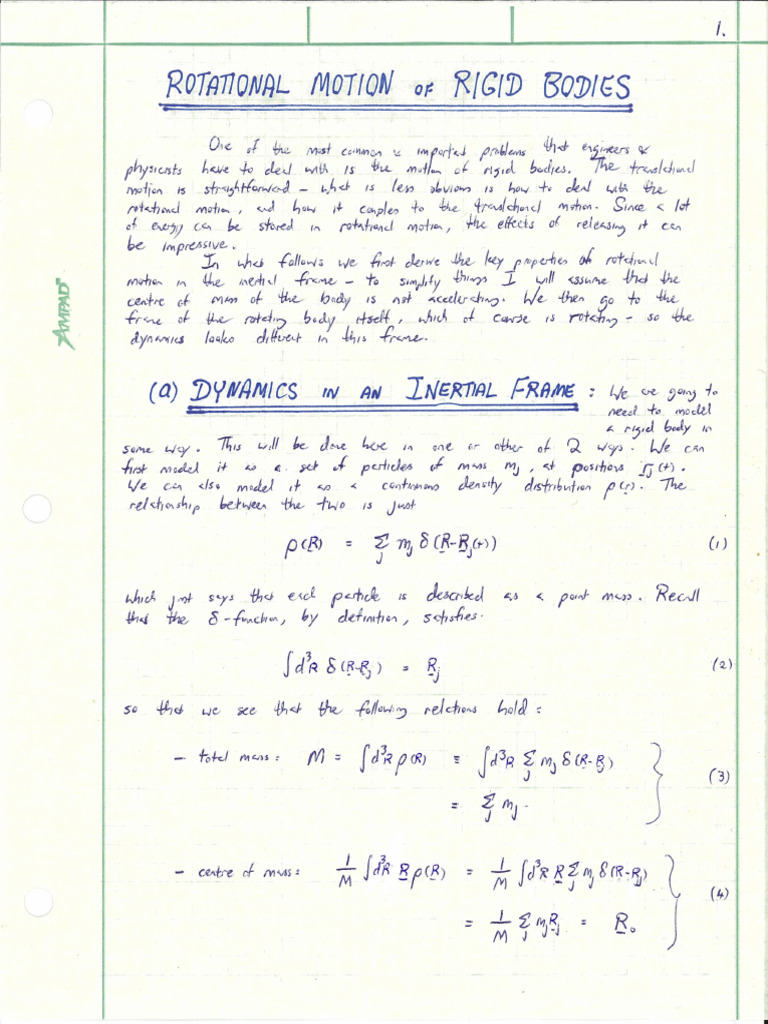 1.
ROTATIONAL MOTION OF RIGID BODIES
One of the most common & important problems that engineers &
physicists have to deal with is the motion of rigid bodies. The translational
motion is straightforward – what is less obvious is how to deal with the
rotational motion, and how it couples to the translational motion. Since a lot
of energy can be stored in rotational motion, the effects of releasing it can
be impressive.
In what follows we first derive the key properties of rotational
motion in the inertial frame – to simplify things I will assume that the
centre of mass of the body is not accelerating. We then go to the
frame of the rotating body itself, which of course is rotating – so the
dynamics looks different in this frame.
AMPAD
(a) DYNAMICS IN AN INERTIAL FRAME : We are going to
need to model
a rigid body in
some way. This will be done here in one or other of 2 ways. We can
first model it as a set of particles of mass mj, at positions rj(t).
We can also model it as a continuous density distribution ρ(r). The
relationship between the two is just
ρ(R) = Σj mj δ(R-Rj(t)) (1)
which just says that each particle is described as a point mass. Recall
that the δ-function, by definition, satisfies.
∫d³R δ(R-Rj) = Rj (2)
so that we see that the following relations hold:
– total mass: M = ∫d³R ρ(R) = ∫d³R Σj mj δ(R-Rj)
= Σj mj. (3)
– centre of mass: 1/M ∫d³R R ρ(R) = 1/M ∫d³R R Σj mj δ(R-Rj)
= 1/M Σj mj Rj = R₀ (4)